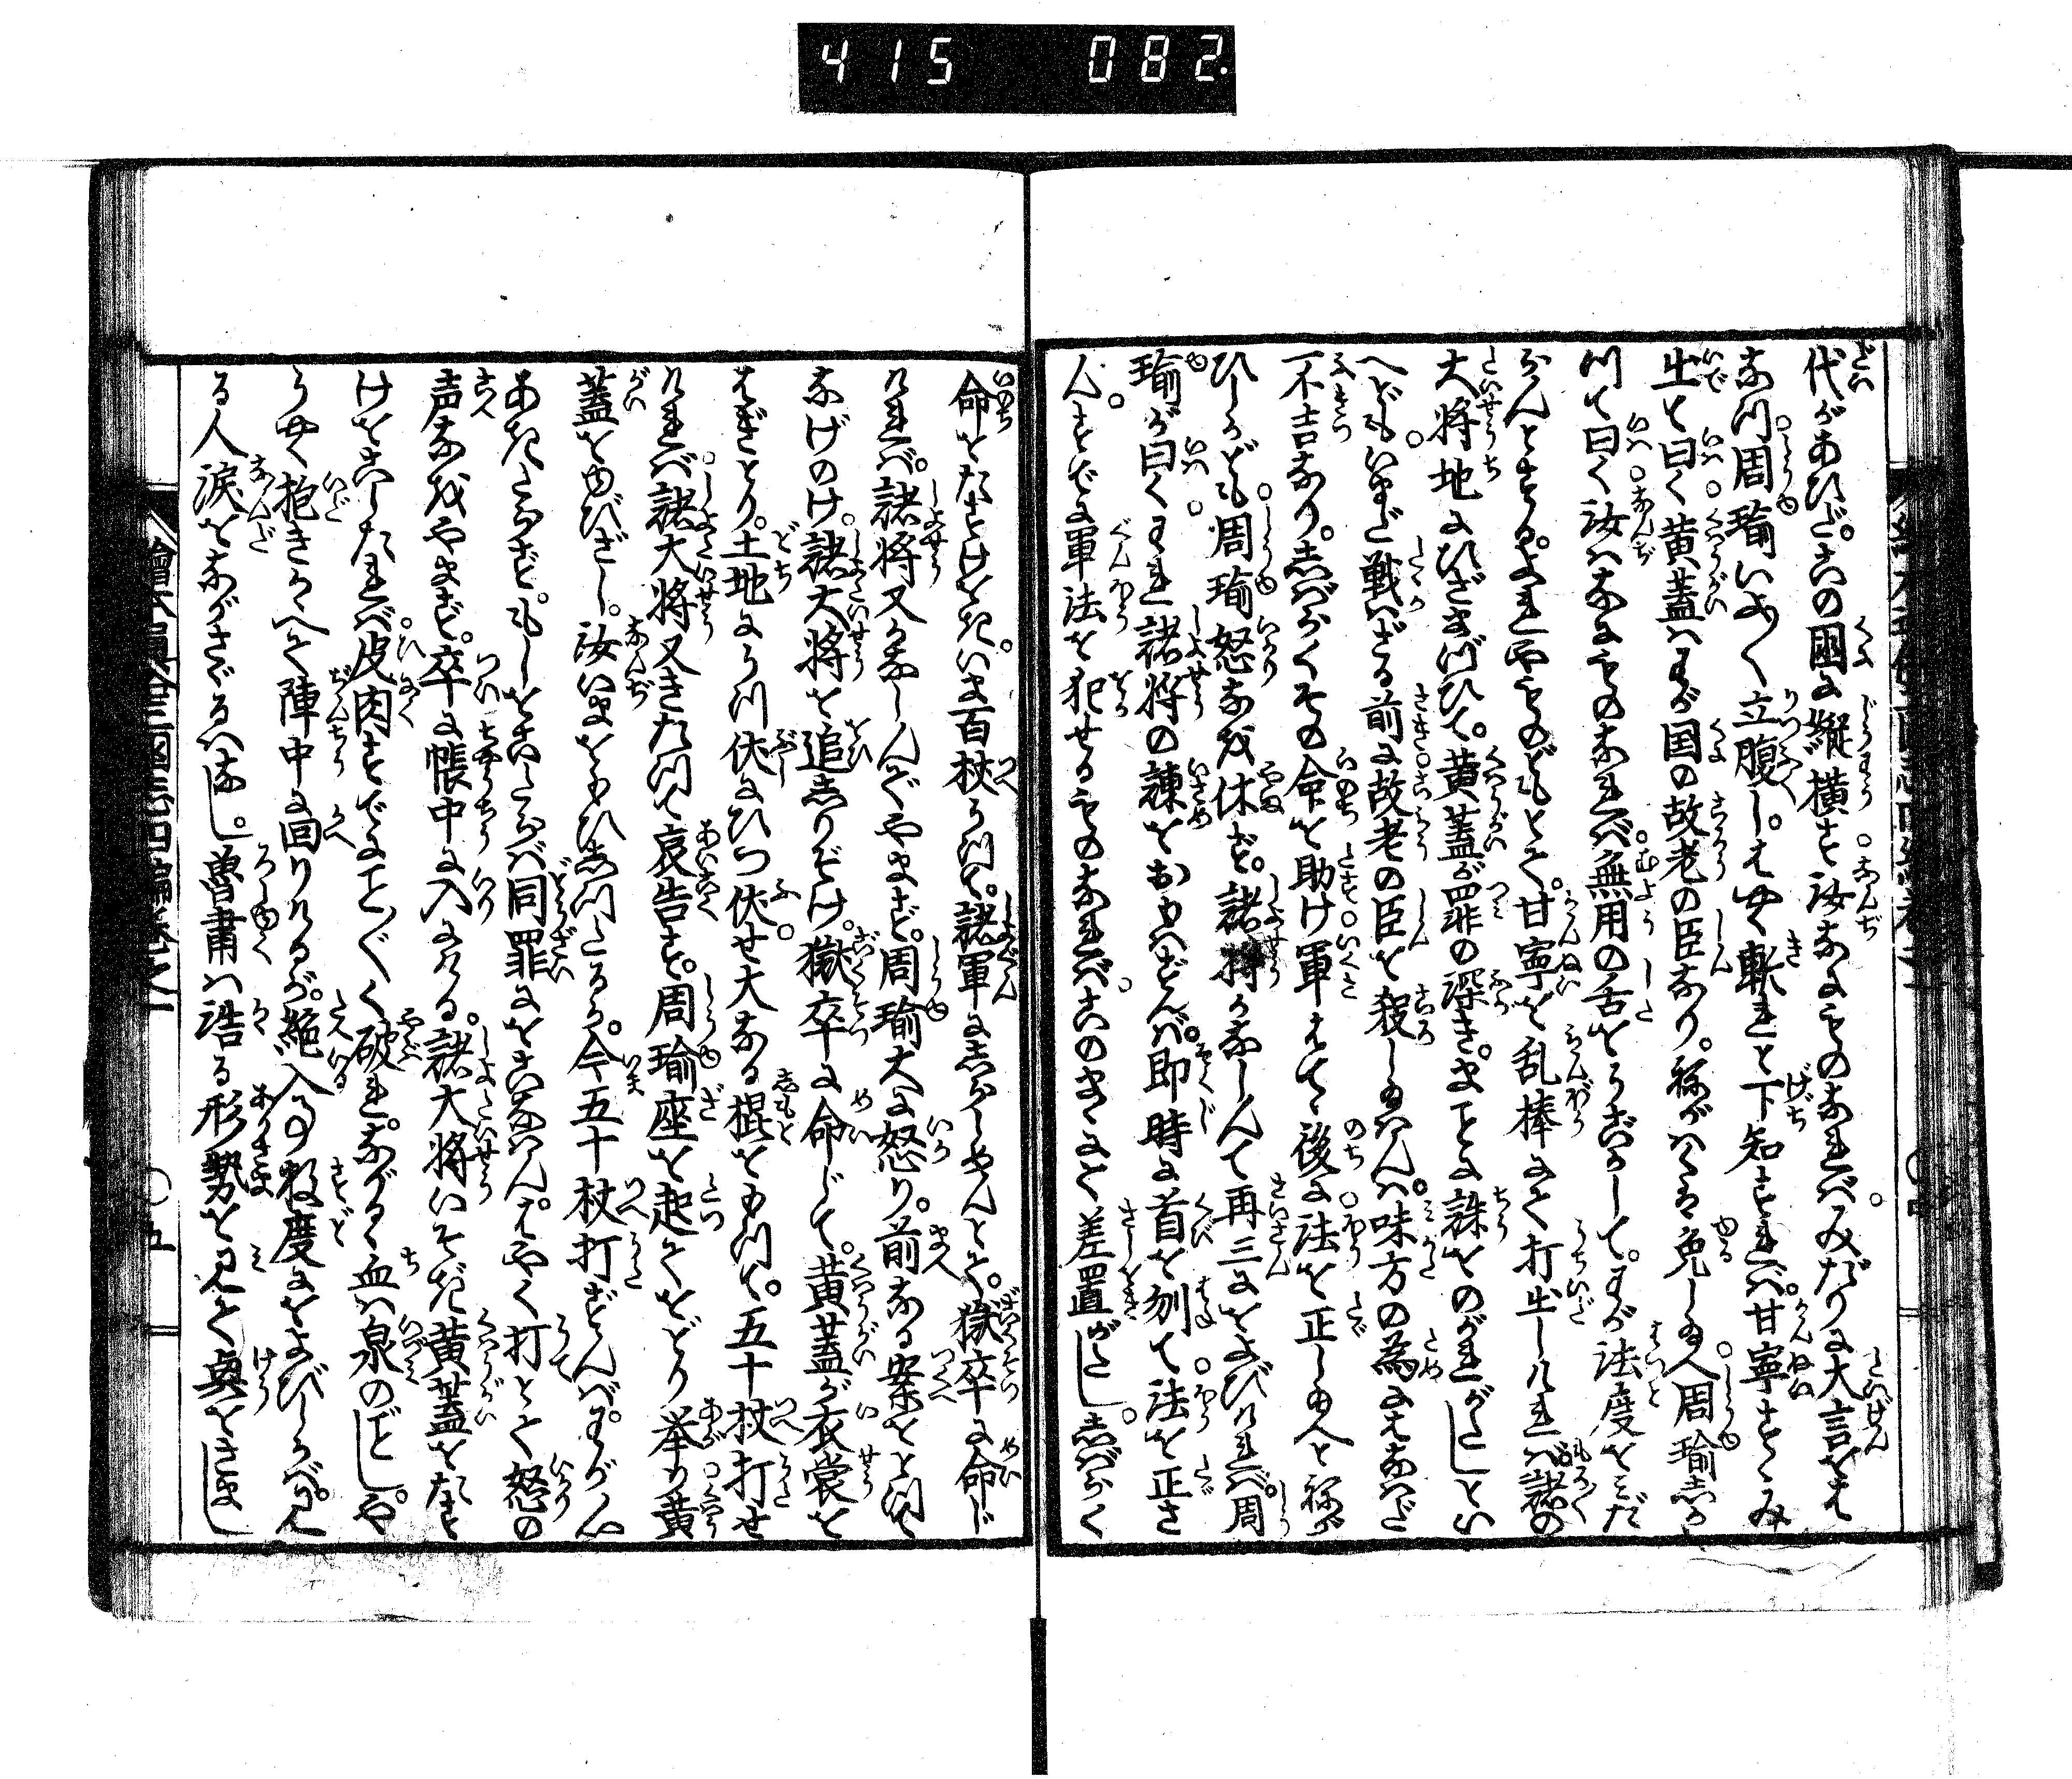 415 082.
代があひだ。此の国に縦横す汝なにものなればみだりに大言をは
なつ周瑜いよ〳〵立腹し。はやく斬れと下知すれば。甘寧すゝみ
出て曰く黄蓋はわが国の故老の臣なり。ねがはくは免し給へ周瑜しか
つて曰く汝はなにものなれば無用の舌をうごかして。わが法度をみだ
さんとする。よれやものどもとて。甘寧を乱棒にて打出しければ諸の
大将地にひざまづひて。黄蓋が罪の深き。まことに誅をのがれがたしとい
へども。いまだ戦はざる前に故老の臣を殺し給はんは。味方の為にはなはだ
不吉なり。しばらくその命を助け軍はてゝ後に法を正し給へと願
ひしかども周瑜怒なを休ず。諸将かなしんで再三におよびければ。周
瑜が曰くわれ諸将の諫をおもはずんば。即時に首を刎て法を正さ
ん。すでに軍法を犯せるものなれば。このまゝにて差置がたし。しばらく
命をたすけをき。いま百杖うつて。諸軍にしらしめんとて。獄卒に命じ
ければ。諸将又かなしんでやまず。周瑜大に怒り。前なる案をとつて
なげのけ。諸大将を追しりぞけ。獄卒に命じて。黄蓋が衣裳を
はぎとり。土地にうつ伏にひつ伏せ大なる棍をもつて。五十杖打せ
ければ。諸大将又きたつて哀告す。周瑜座を起ておどり挙り黄
蓋をゆびざし。汝いまをもひしつたるか。今五十杖打ずんば。わが心
あきたらず。もしをこたらば同罪にをこなはん。はやく打とて怒の
声なをやまず。卒に帳中に入にける。諸大将いそぎ黄蓋をたす
けをこしたれば。皮肉すでにこと〴〵く破れ。ながるゝ血は泉のごとし。や
うやく抱きかへて陣中に回りけるが。絶入る事数度におよびしかば。見
る人涙をながさゞるはなし。魯粛は浩る形勢を見て興をさまし
繪本通俗三國志四編巻之一
〇五